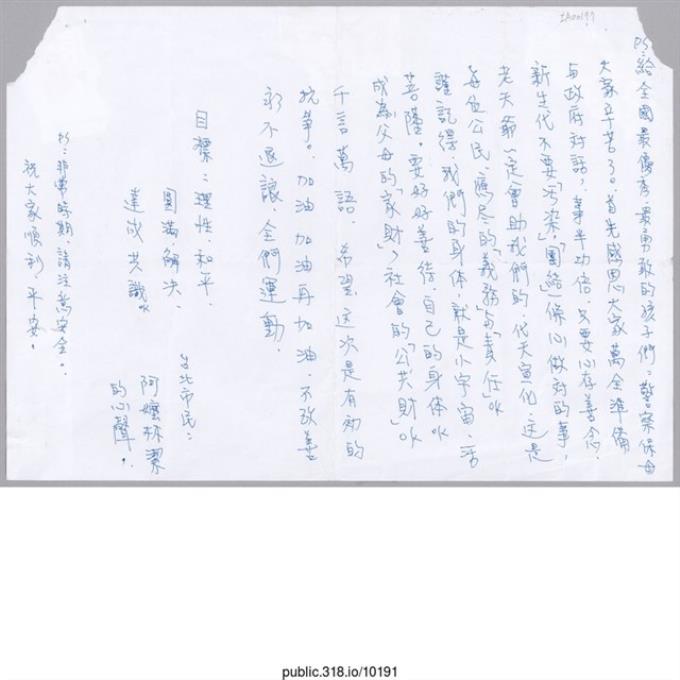 PS: 給全國最優秀、最勇敢的孩子們：警察保母
大家辛苦了。首先感恩大家萬全準備
与政府对話，事半功倍。只要心存善念，
新生代不要「污染」，「團結」一條心做对的事，
老天爺一定会助我們的，代天宣化，这是
每位公民應尽的「義務」与「責任」。
謹記得，我們的身体，就是小宇宙，活
菩薩。要好好善待，自己的身体
成為父母的「家財」，社會的「公共財」
千言萬語，希望这次是有効的
抗爭。加油加油再加油，不改善
永不退讓，全們運動，
目標：理性、和平、
圓滿、解決、
達成共識
台北市民：
阿嬤林潔
的心聲。
PS: 非常時期，請注意安全。
祝大家順利、平安。
1A00199
public.318.io/10191